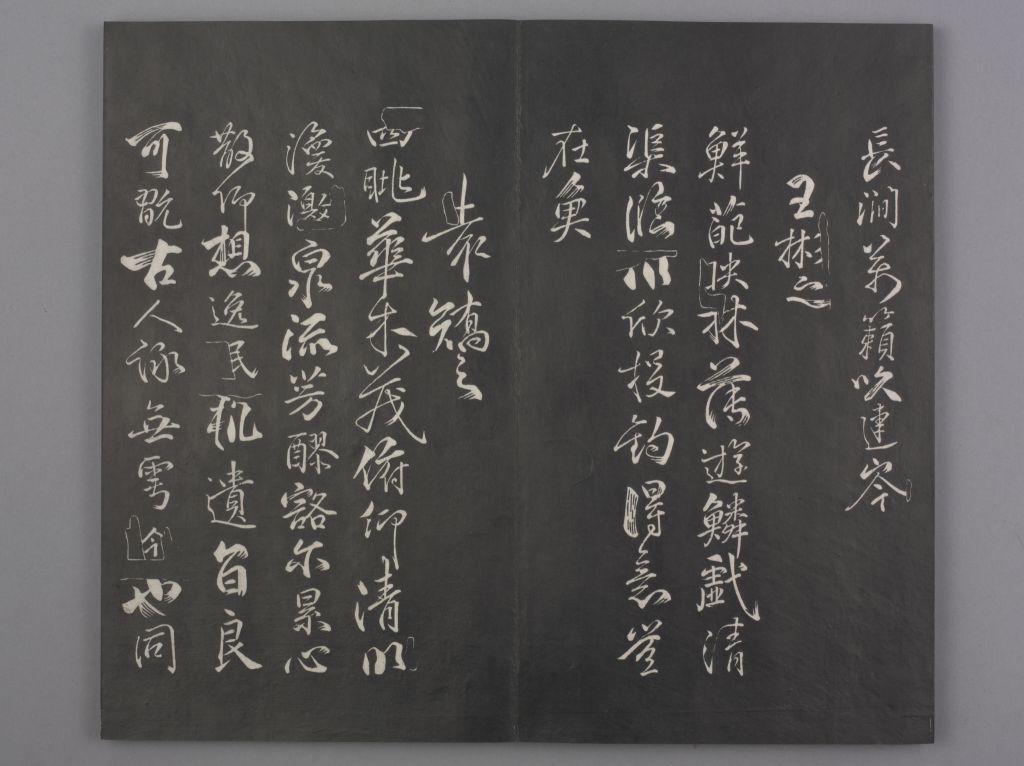 長澗萬籟吹連峯
王彬之
鮮葩映林薄遊鱗戲清
渠臨川欣投釣得意豈
在魚
袁嶠之
四眺華木茂俯仰清川
渙激泉流芳醪豁尔累心
散仰想逸民軌遺音良
可翫古人詠無雩今也同